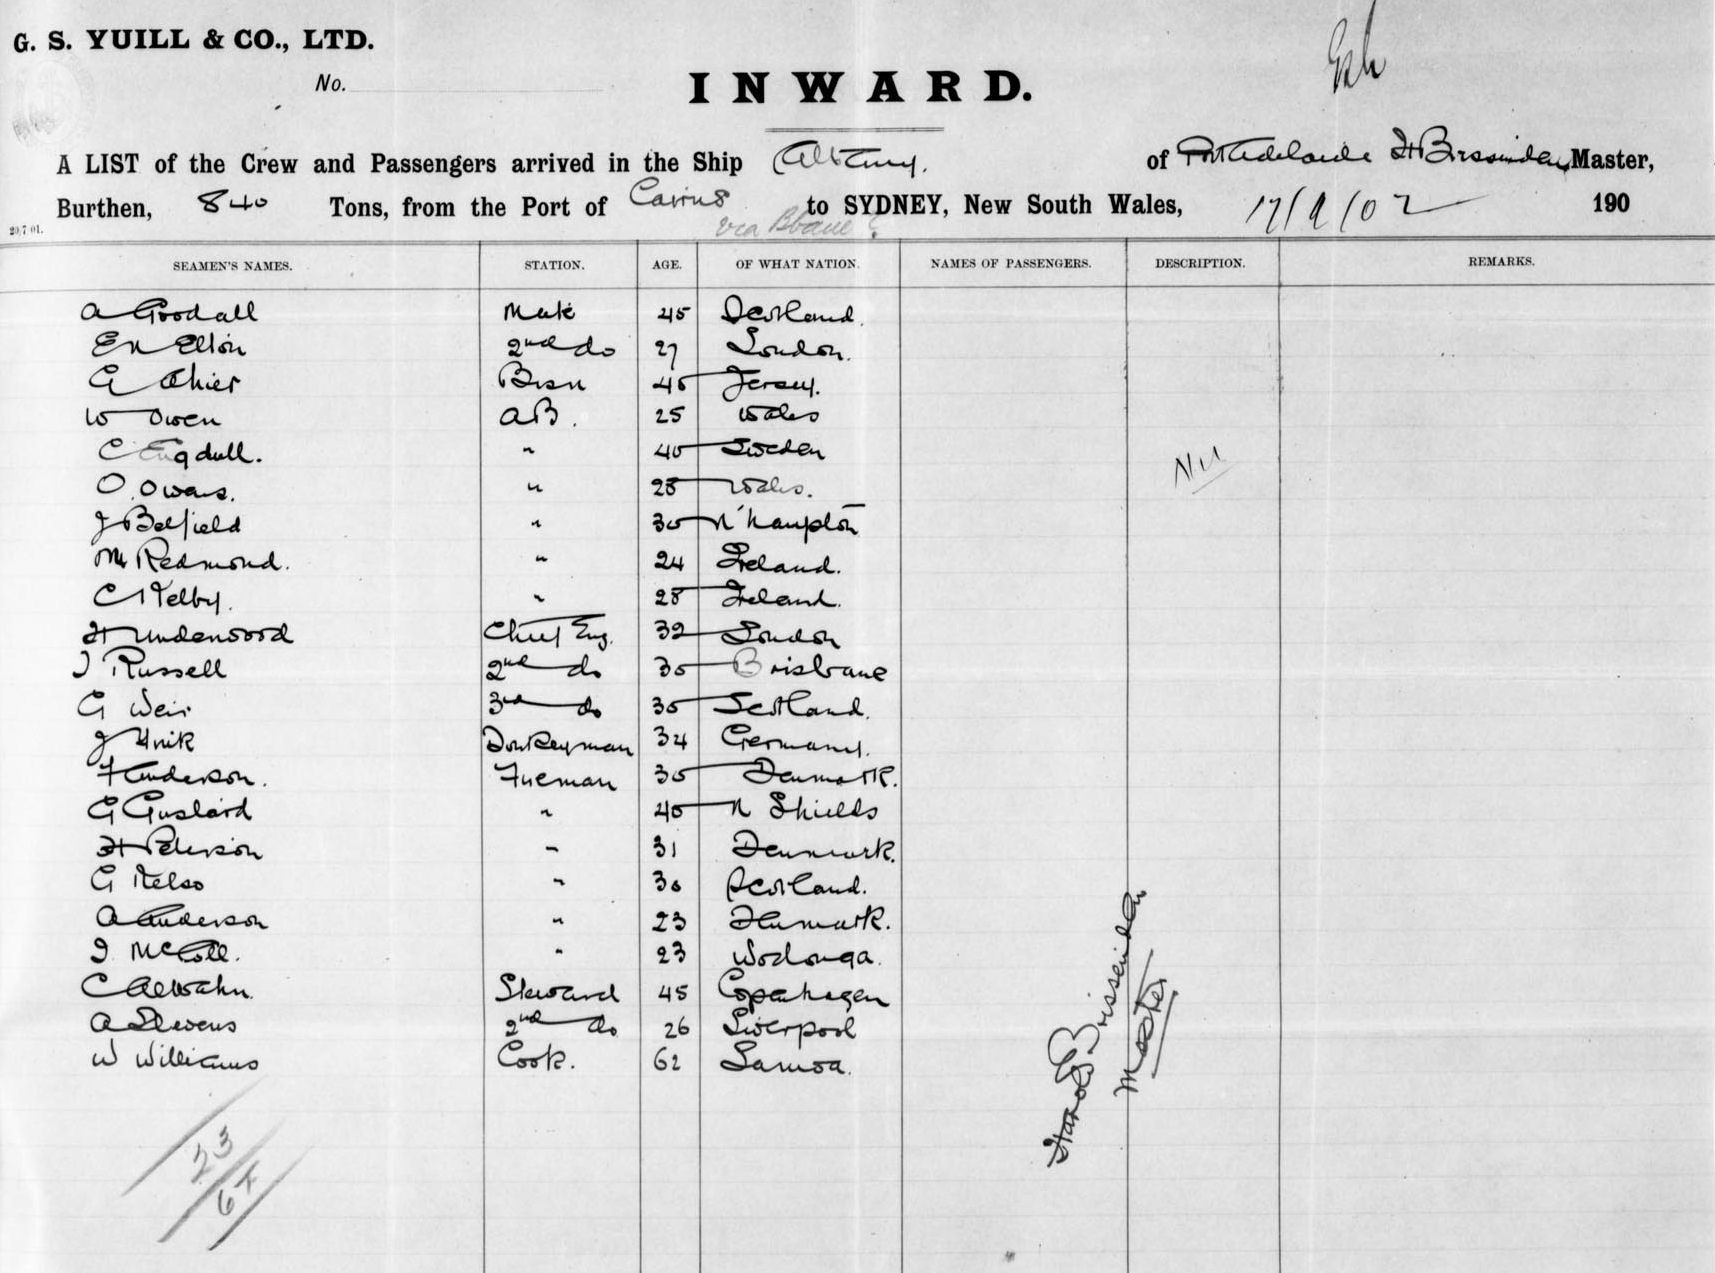 G. S. YUILL & CO., LTD.
No.
INWARD.
A LIST of the Crew and Passengers arrived in the Ship Albany. of Port Adelaide H Brissenden Master,
Burthen, 840 Tons, from the Port of Cairns to SYDNEY, New South Wales, 17/9/02 190
via Bbane
20,7 01.
SEAMEN'S NAMES. STATION. AGE. OF WHAT NATION. NAMES OF PASSENGERS. DESCRIPTION. REMARKS.
A Goodall Mate 45 Scotland.
E N Elton 2nd do 27 London.
G Ahier Bosn 40 Jersey.
W Owen AB. 25 Wales
C Engdull. " 40 Sweden
O. Owens. " 28 Wales.
Nil
J Belfield " 30 N'hampton
M Redmond. " 24 Ireland.
C Kelby. " 28 Ireland.
H Underwood Chief Eng. 32 London
J Russell 2nd do 30 Brisbane
G Weir 3rd do 30 Scotland.
J Donkeyman 34 Germany.
F Anderson. Fireman 30 Denmark.
G " 40 N Shields
H Peterson " 31 Denmark.
G Kelso " 30 Scotland.
A Anderson " 23 Denmark.
J McColl. " 23 Wodonga.
C Steward 45 Copenhagen
A Stevens 2nd do 26 Liverpool
W Williams Cook. 62 Samoa.
Harold G Brissenden
Master
23